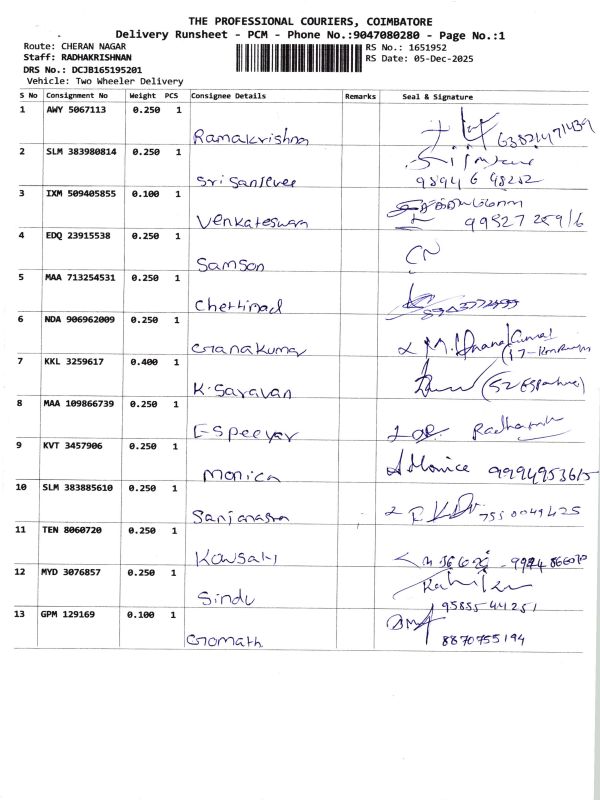 THE PROFESSIONAL COURIERS, COIMBATORE
Delivery Runsheet - PCM - Phone No.:9047080280 - Page No.:1
Route: CHERAN NAGAR RS No.: 1651952
Staff: RADHAKRISHNAN RS Date: 05-Dec-2025
DRS No.: DCJB165195201
Vehicle: Two Wheeler Delivery
S No Consignment No Weight PCS Consignee Details Remarks Seal & Signature
1 AWY 5067113 0.250 1
Ramakrishna
2 SLM 383980814 0.250 1
Sri Sanjevee 98946 48252
3 IXM 509405855 0.100 1
Venkateswan 99527 25916
4 EDQ 23915538 0.250 1
Samson CN
5 MAA 713254531 0.250 1
Chettinad
6 NDA 906962009 0.250 1
Gnanakumar
7 KKL 3259617 0.400 1
K. Saravan
8 MAA 109866739 0.250 1
Radha
9 KVT 3457906 0.250 1
Monica Monica
10 SLM 383885610 0.250 1
7550049425
11 TEN 8060720 0.250 1
Kowsaly
12 MYD 3076857 0.250 1
Sindu
9585544251
13 GPM 129169 0.100 1
Gomath 8870755194